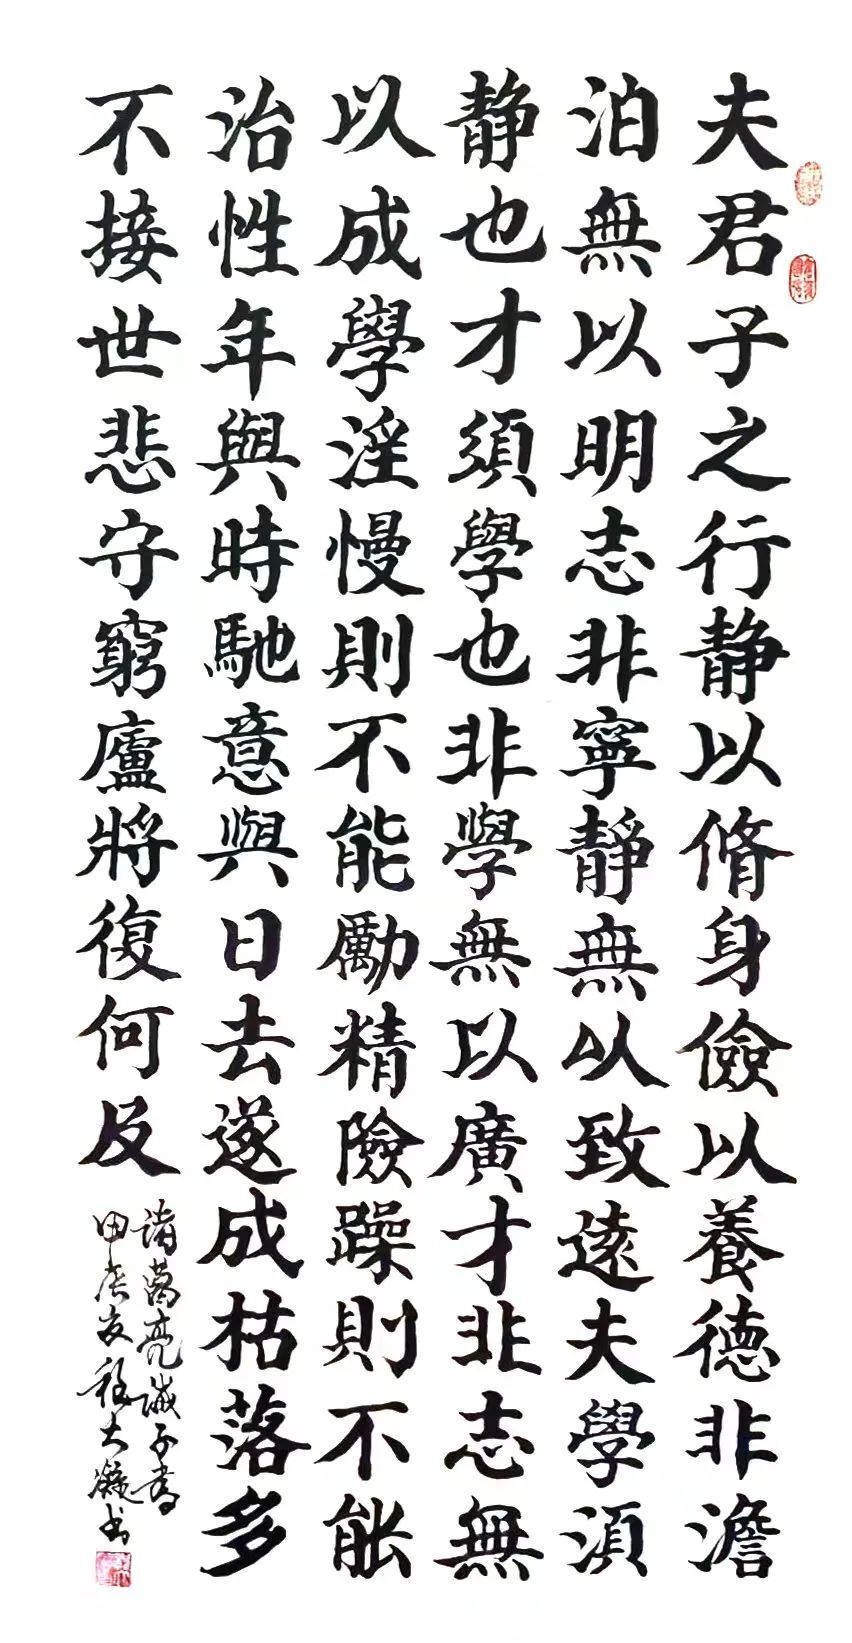 夫君子之行静以脩身儉以養德非澹
泊無以明志非寧靜無以致遠夫學須
静也才須學也非學無以廣才非志無
以成學淫慢則不能勵精險躁則不能
治性年與時馳意與日去遂成枯落多
不接世悲守窮廬將復何及
诸葛亮诫子書
程大凝书